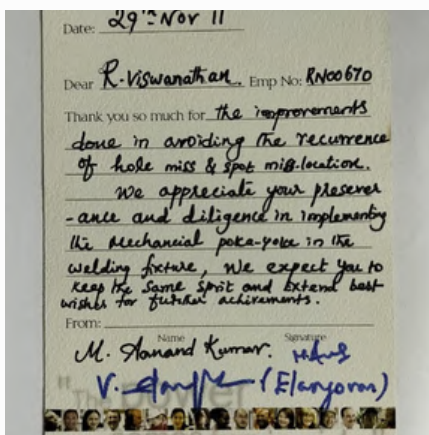 Date: 29th Nov 11
Dear R. Viswanathan Emp No: RN00670
Thank you so much for the improvements
done in avoiding the recurrence
of hole miss & spot miss-location.
We appreciate your presever
-ance and diligence in implementing
the Mechancial poka-yoke in the
welding fixture, We expect you to
keep the same sprit and extend best
wishes for further achirements.
From:
Name Signature
M. Aanand Kumar.
V. (Elangovan)
"The power